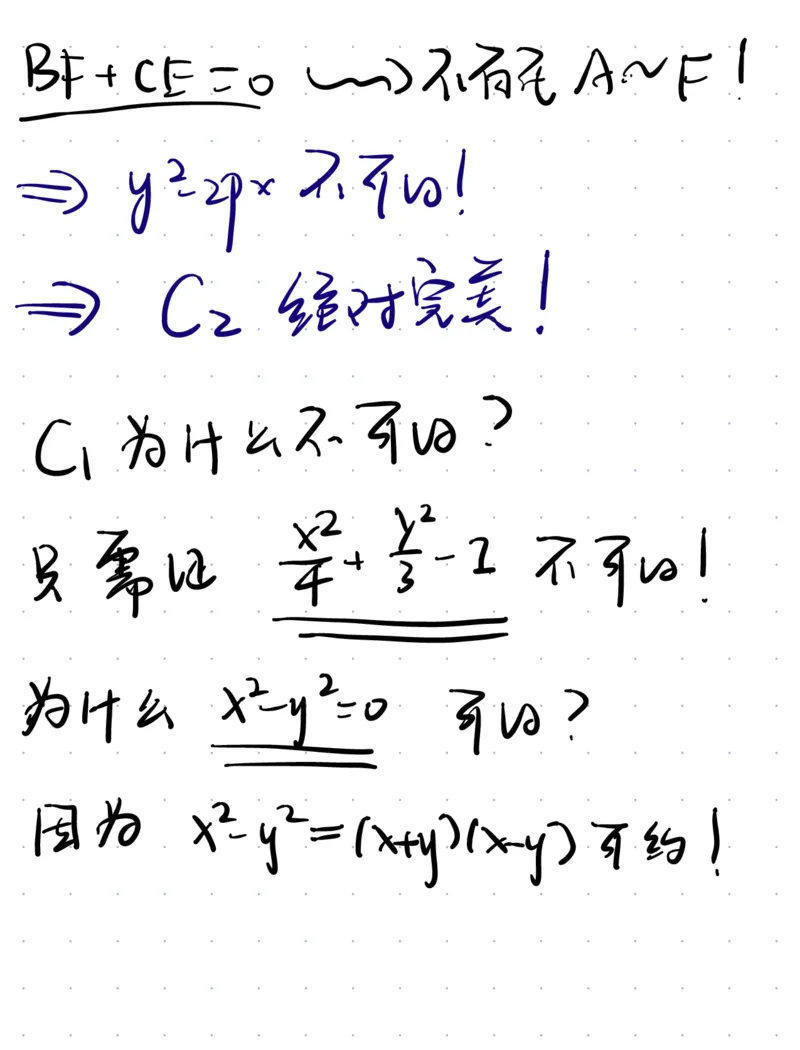 BF+CE=0 ⇝ 不可能 A~F!
⇒ y²-2px 不可约!
⇒ C₂ 绝对完美!
C₁ 为什么不可约?
只需证 x²/4 + y²/3 - 1 不可约!
为什么 x²-y²=0 可约?
因为 x²-y²=(x+y)(x-y) 可约!